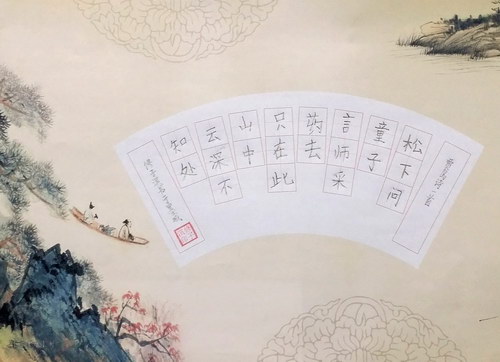 贾岛诗一首
松下问
童子
言师采
药去
只在此
山中
云深不
知处